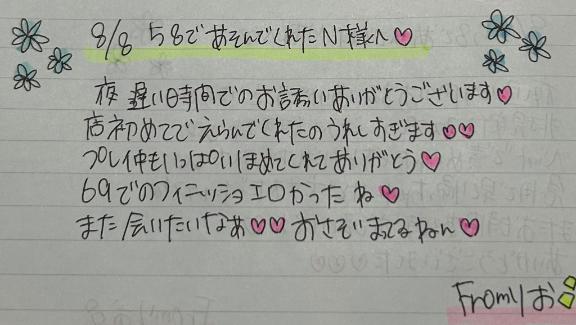 8/8 58であそんでくれたN様へ♡
夜遅い時間でのお誘いありがとうございます♡
店初めてでえらんでくれたのうれしすぎます♡♡
プレイ中もいっぱいほめてくれてありがとう♡
69でのフィニッショエロかったね♡
また会いたいなあ♡♡おさそいまってるねん♡
Fromりお